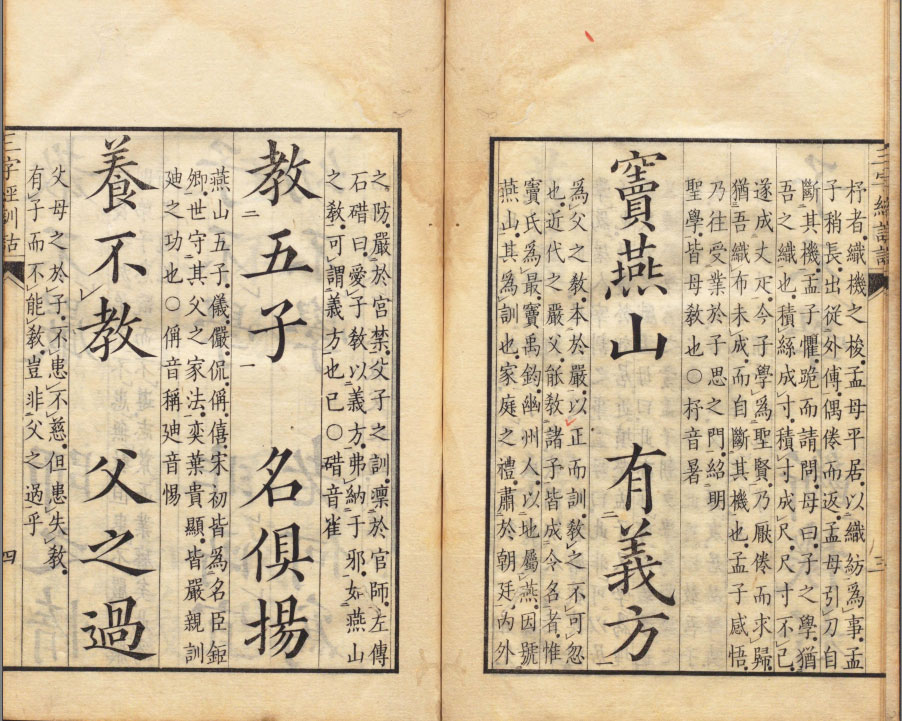 杼者織機之梭孟母平居以織紡爲事孟
子稍長出從外傅偶倦而返孟母引刀自
斷其機孟子懼跪而請問母曰子之學猶
吾之織也積絲成寸積寸成尺尺寸不已
遂成丈疋今子學爲聖賢乃厭倦而求歸
猶吾織布未成而自斷其機也孟子感悟
乃往受業於子思之門紹明
聖學皆母敎也○杼音暑
竇燕山 有義方
爲父之敎本於嚴以正而訓敎之不可忽
也近代之嚴父能敎諸子皆成令名者惟
竇氏爲最竇禹鈞幽州人以地屬燕因號
燕山其爲訓也家庭之禮肅於朝廷內外
之防嚴於宮禁父子之訓凜於官師左傳
石碏曰愛子敎以義方弗納于邪如燕山
之敎可謂義方也已○碏音雀
教五子 名俱揚
燕山五子儀嚴侃偁僖宋初皆爲名臣鉅
卿世守其父之家法奕葉貴顯皆嚴親訓
廸之功也○偁音稱廸音惕
養不教 父之過
父母之於子不患不慈但患失敎
有子而不能敎豈非父之過乎
三字經訓詁 四